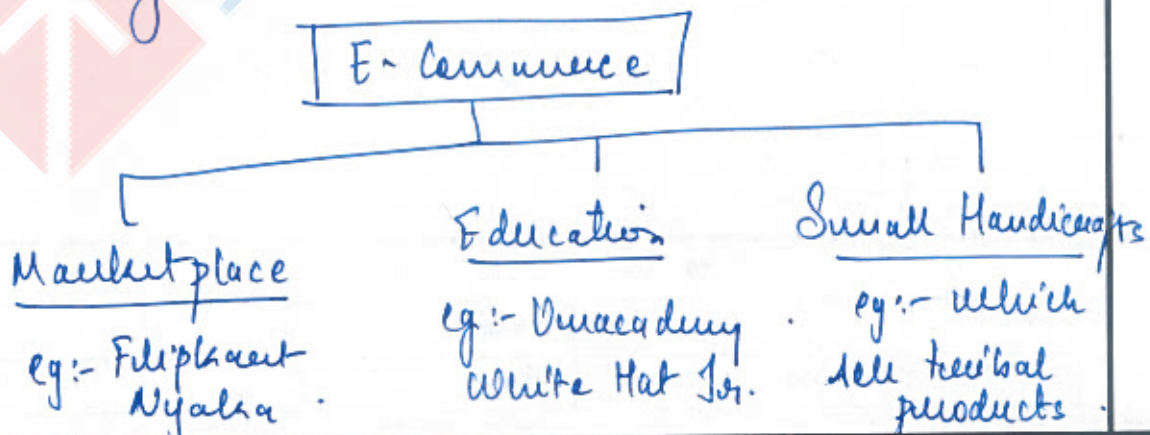 E-Commerce
Marketplace
eg:- Flipkart
Nyaka .
Education
eg:- Unacademy .
White Hat Jr.
Small Handicrafts
eg:- which
sell tribal
products .